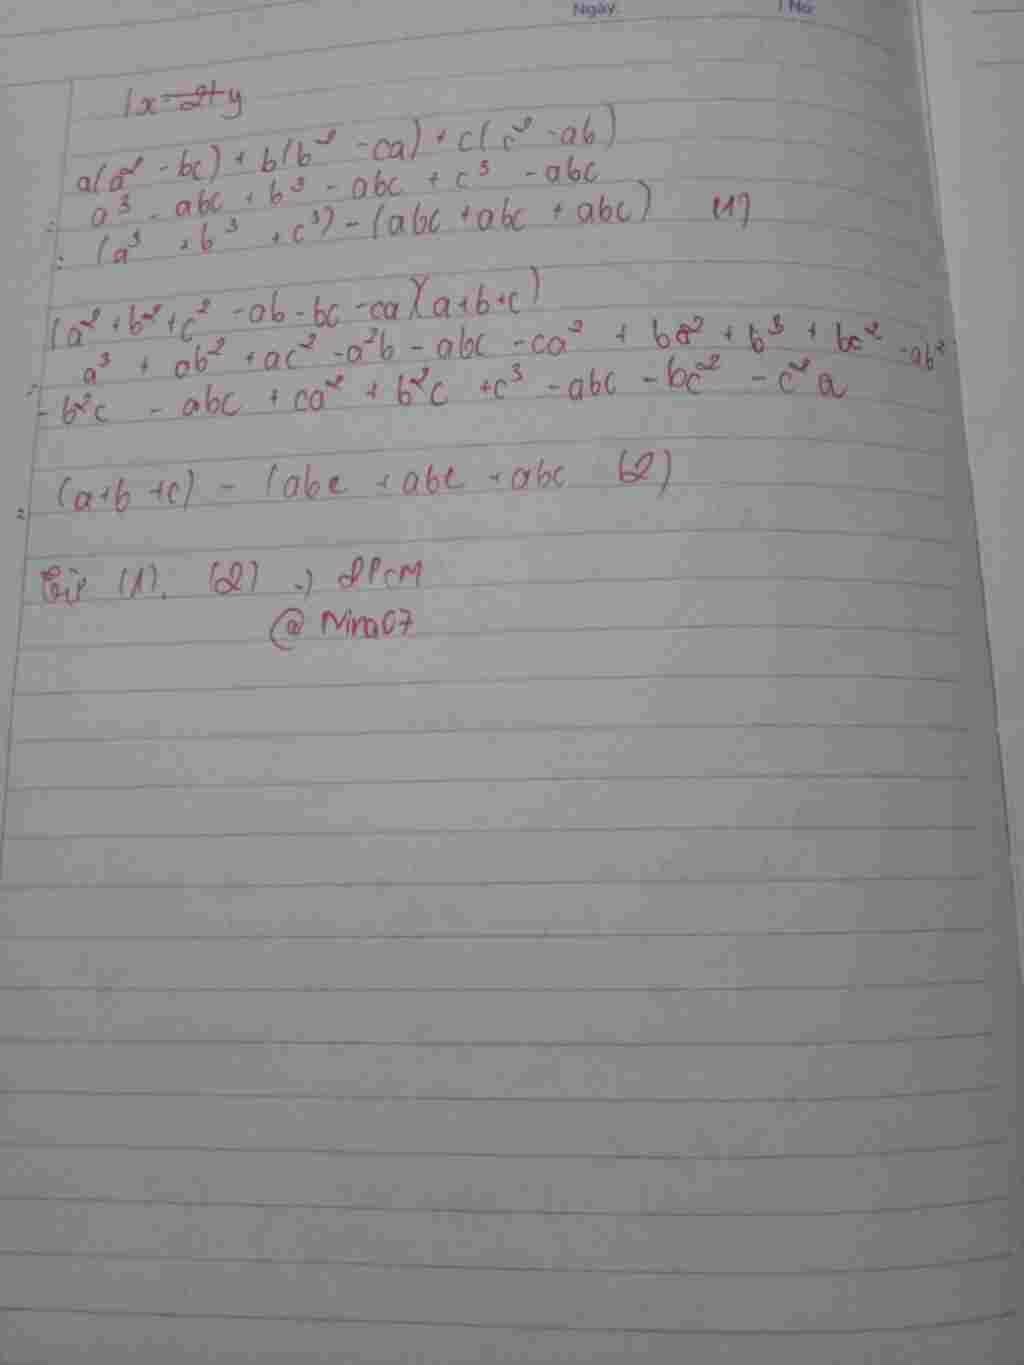 Ngày
a(a² - bc) + b(b² - ca) + c(c² - ab)
= a³ - abc + b³ - abc + c³ - abc
= (a³ + b³ + c³) - (abc + abc + abc) (1)
(a² + b² + c² - ab - bc - ca)(a + b + c)
= a³ + ab² + ac² - a²b - abc - ca² + ba² + b³ + bc² - ab²
- b²c - abc + ca² + b²c + c³ - abc - bc² - c²a
= (a + b + c) - (abc + abc + abc (2)
Từ (1), (2) → ĐPCM
@Nino07